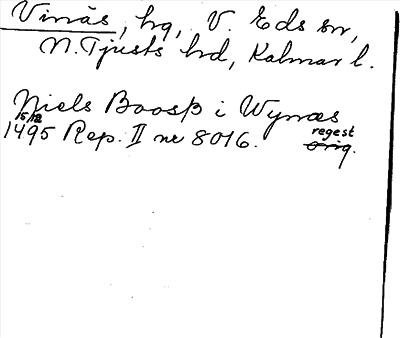 Vinäs, hg, V. Eds sn,
N. Tjusts hd, Kalmar l.
Niels Boosß i Wynæs
15/12
1495 Rep. II nr 8016. regest
orig.